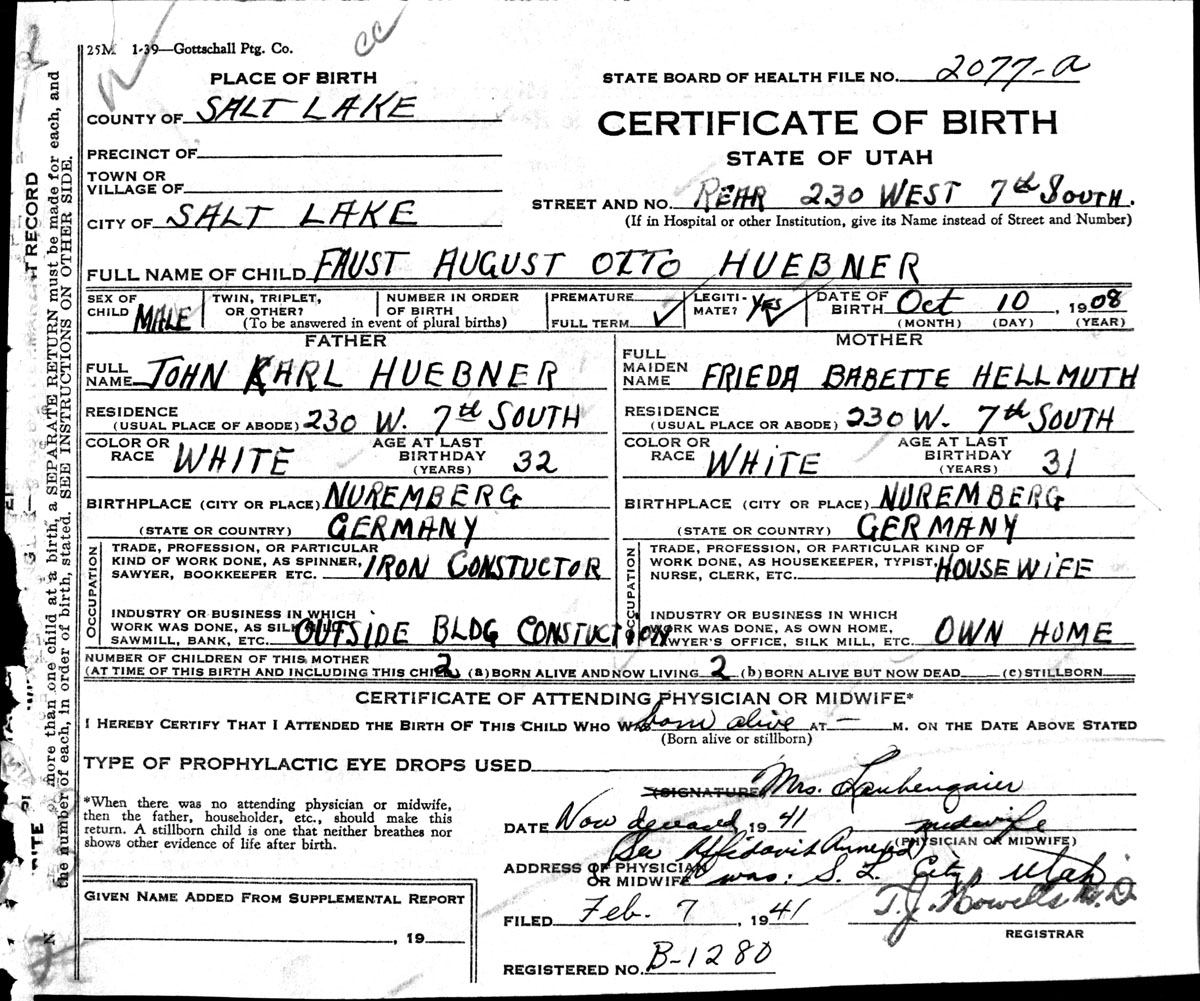 25M 1-39—Gottschall Ptg. Co.
cc
PLACE OF BIRTH
COUNTY OF SALT LAKE
PRECINCT OF
TOWN OR
VILLAGE OF
CITY OF SALT LAKE
STATE BOARD OF HEALTH FILE NO. 2077-a
CERTIFICATE OF BIRTH
STATE OF UTAH
STREET AND NO. REAR 230 WEST 7th SOUTH.
(If in Hospital or other Institution, give its Name instead of Street and Number)
FULL NAME OF CHILD FAUST AUGUST OTTO HUEBNER
SEX OF
CHILD MALE
TWIN, TRIPLET,
OR OTHER?
NUMBER IN ORDER
OF BIRTH
(To be answered in event of plural births)
PREMATURE
FULL TERM ✓
LEGITI-
MATE? YES ✓
DATE OF
BIRTH Oct 10, 1908
(MONTH) (DAY) (YEAR)
FATHER
FULL
NAME JOHN KARL HUEBNER
RESIDENCE
(USUAL PLACE OF ABODE) 230 W. 7th SOUTH
COLOR OR
RACE WHITE
AGE AT LAST
BIRTHDAY
(YEARS) 32
BIRTHPLACE (CITY OR PLACE) NUREMBERG
(STATE OR COUNTRY) GERMANY
OCCUPATION
TRADE, PROFESSION, OR PARTICULAR
KIND OF WORK DONE, AS SPINNER,
SAWYER, BOOKKEEPER ETC. IRON CONSTUCTOR
INDUSTRY OR BUSINESS IN WHICH
WORK WAS DONE, AS SILK MILL,
SAWMILL, BANK, ETC. OUTSIDE BLDG CONSTUCTION
MOTHER
FULL
MAIDEN
NAME FRIEDA BABETTE HELLMUTH
RESIDENCE
(USUAL PLACE OR ABODE) 230 W. 7th SOUTH
COLOR OR
RACE WHITE
AGE AT LAST
BIRTHDAY
(YEARS) 31
BIRTHPLACE (CITY OR PLACE) NUREMBERG
(STATE OR COUNTRY) GERMANY
OCCUPATION
TRADE, PROFESSION, OR PARTICULAR KIND OF
WORK DONE, AS HOUSEKEEPER, TYPIST,
NURSE, CLERK, ETC. HOUSEWIFE
INDUSTRY OR BUSINESS IN WHICH
WORK WAS DONE, AS OWN HOME,
LAWYER'S OFFICE, SILK MILL, ETC. OWN HOME
NUMBER OF CHILDREN OF THIS MOTHER
(AT TIME OF THIS BIRTH AND INCLUDING THIS CHILD) 2 (a) BORN ALIVE AND NOW LIVING 2 (b) BORN ALIVE BUT NOW DEAD (c) STILLBORN
CERTIFICATE OF ATTENDING PHYSICIAN OR MIDWIFE*
I HEREBY CERTIFY THAT I ATTENDED THE BIRTH OF THIS CHILD WHO WAS born alive AT — M. ON THE DATE ABOVE STATED
(Born alive or stillborn)
TYPE OF PROPHYLACTIC EYE DROPS USED
*When there was no attending physician or midwife,
then the father, householder, etc., should make this
return. A stillborn child is one that neither breathes nor
shows other evidence of life after birth.
(SIGNATURE Mrs.
DATE Now deceased, 1941 midwife
(PHYSICIAN OR MIDWIFE)
See Affidavit Annexed
ADDRESS OF PHYSICIAN
OR MIDWIFE was: S. L. City, Utah
FILED Feb. 7, 1941 T. J. Howells M.D.
REGISTRAR
REGISTERED NO. B-1280
GIVEN NAME ADDED FROM SUPPLEMENTAL REPORT
, 19
RECORD
more than one child at a birth, a SEPARATE RETURN must be made for each, and
the number of each, in order of birth, stated. SEE INSTRUCTIONS ON OTHER SIDE.